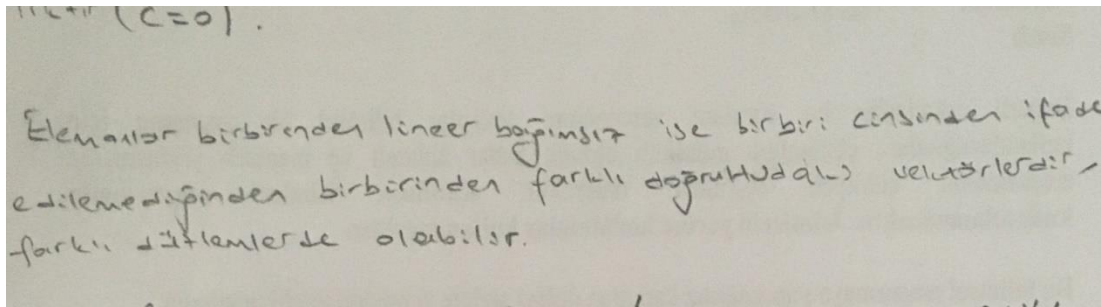 (c=0).
Elemanlar birbirinden lineer bağımsız ise birbiri cinsinden ifade
edilemediğinden birbirinden farklı doğrultudaki vektörlerdir,
farklı düzlemlerde olabilir.